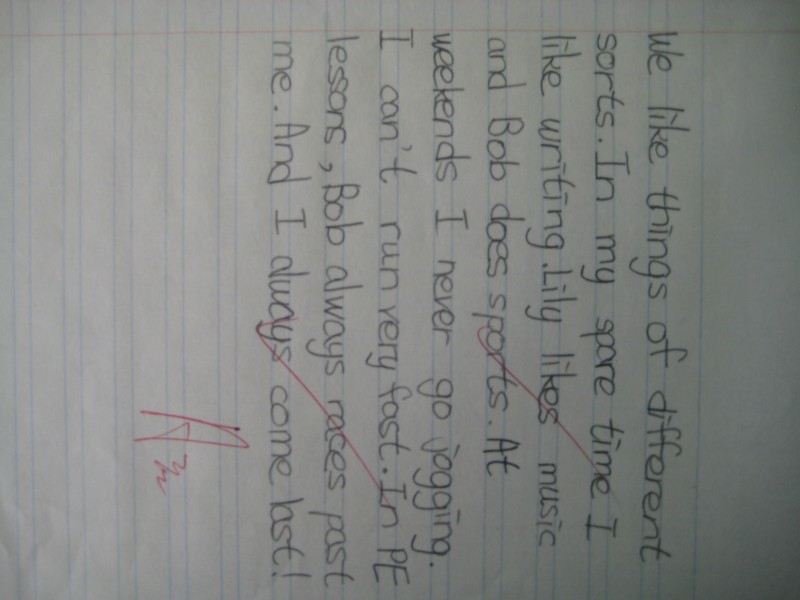 We like things of different
sorts. In my spare time I
like writing. Lily likes music
and Bob does sports. At
weekends I never go jogging.
I can't run very fast. In PE
lessons, Bob always races past
me. And I always come last!